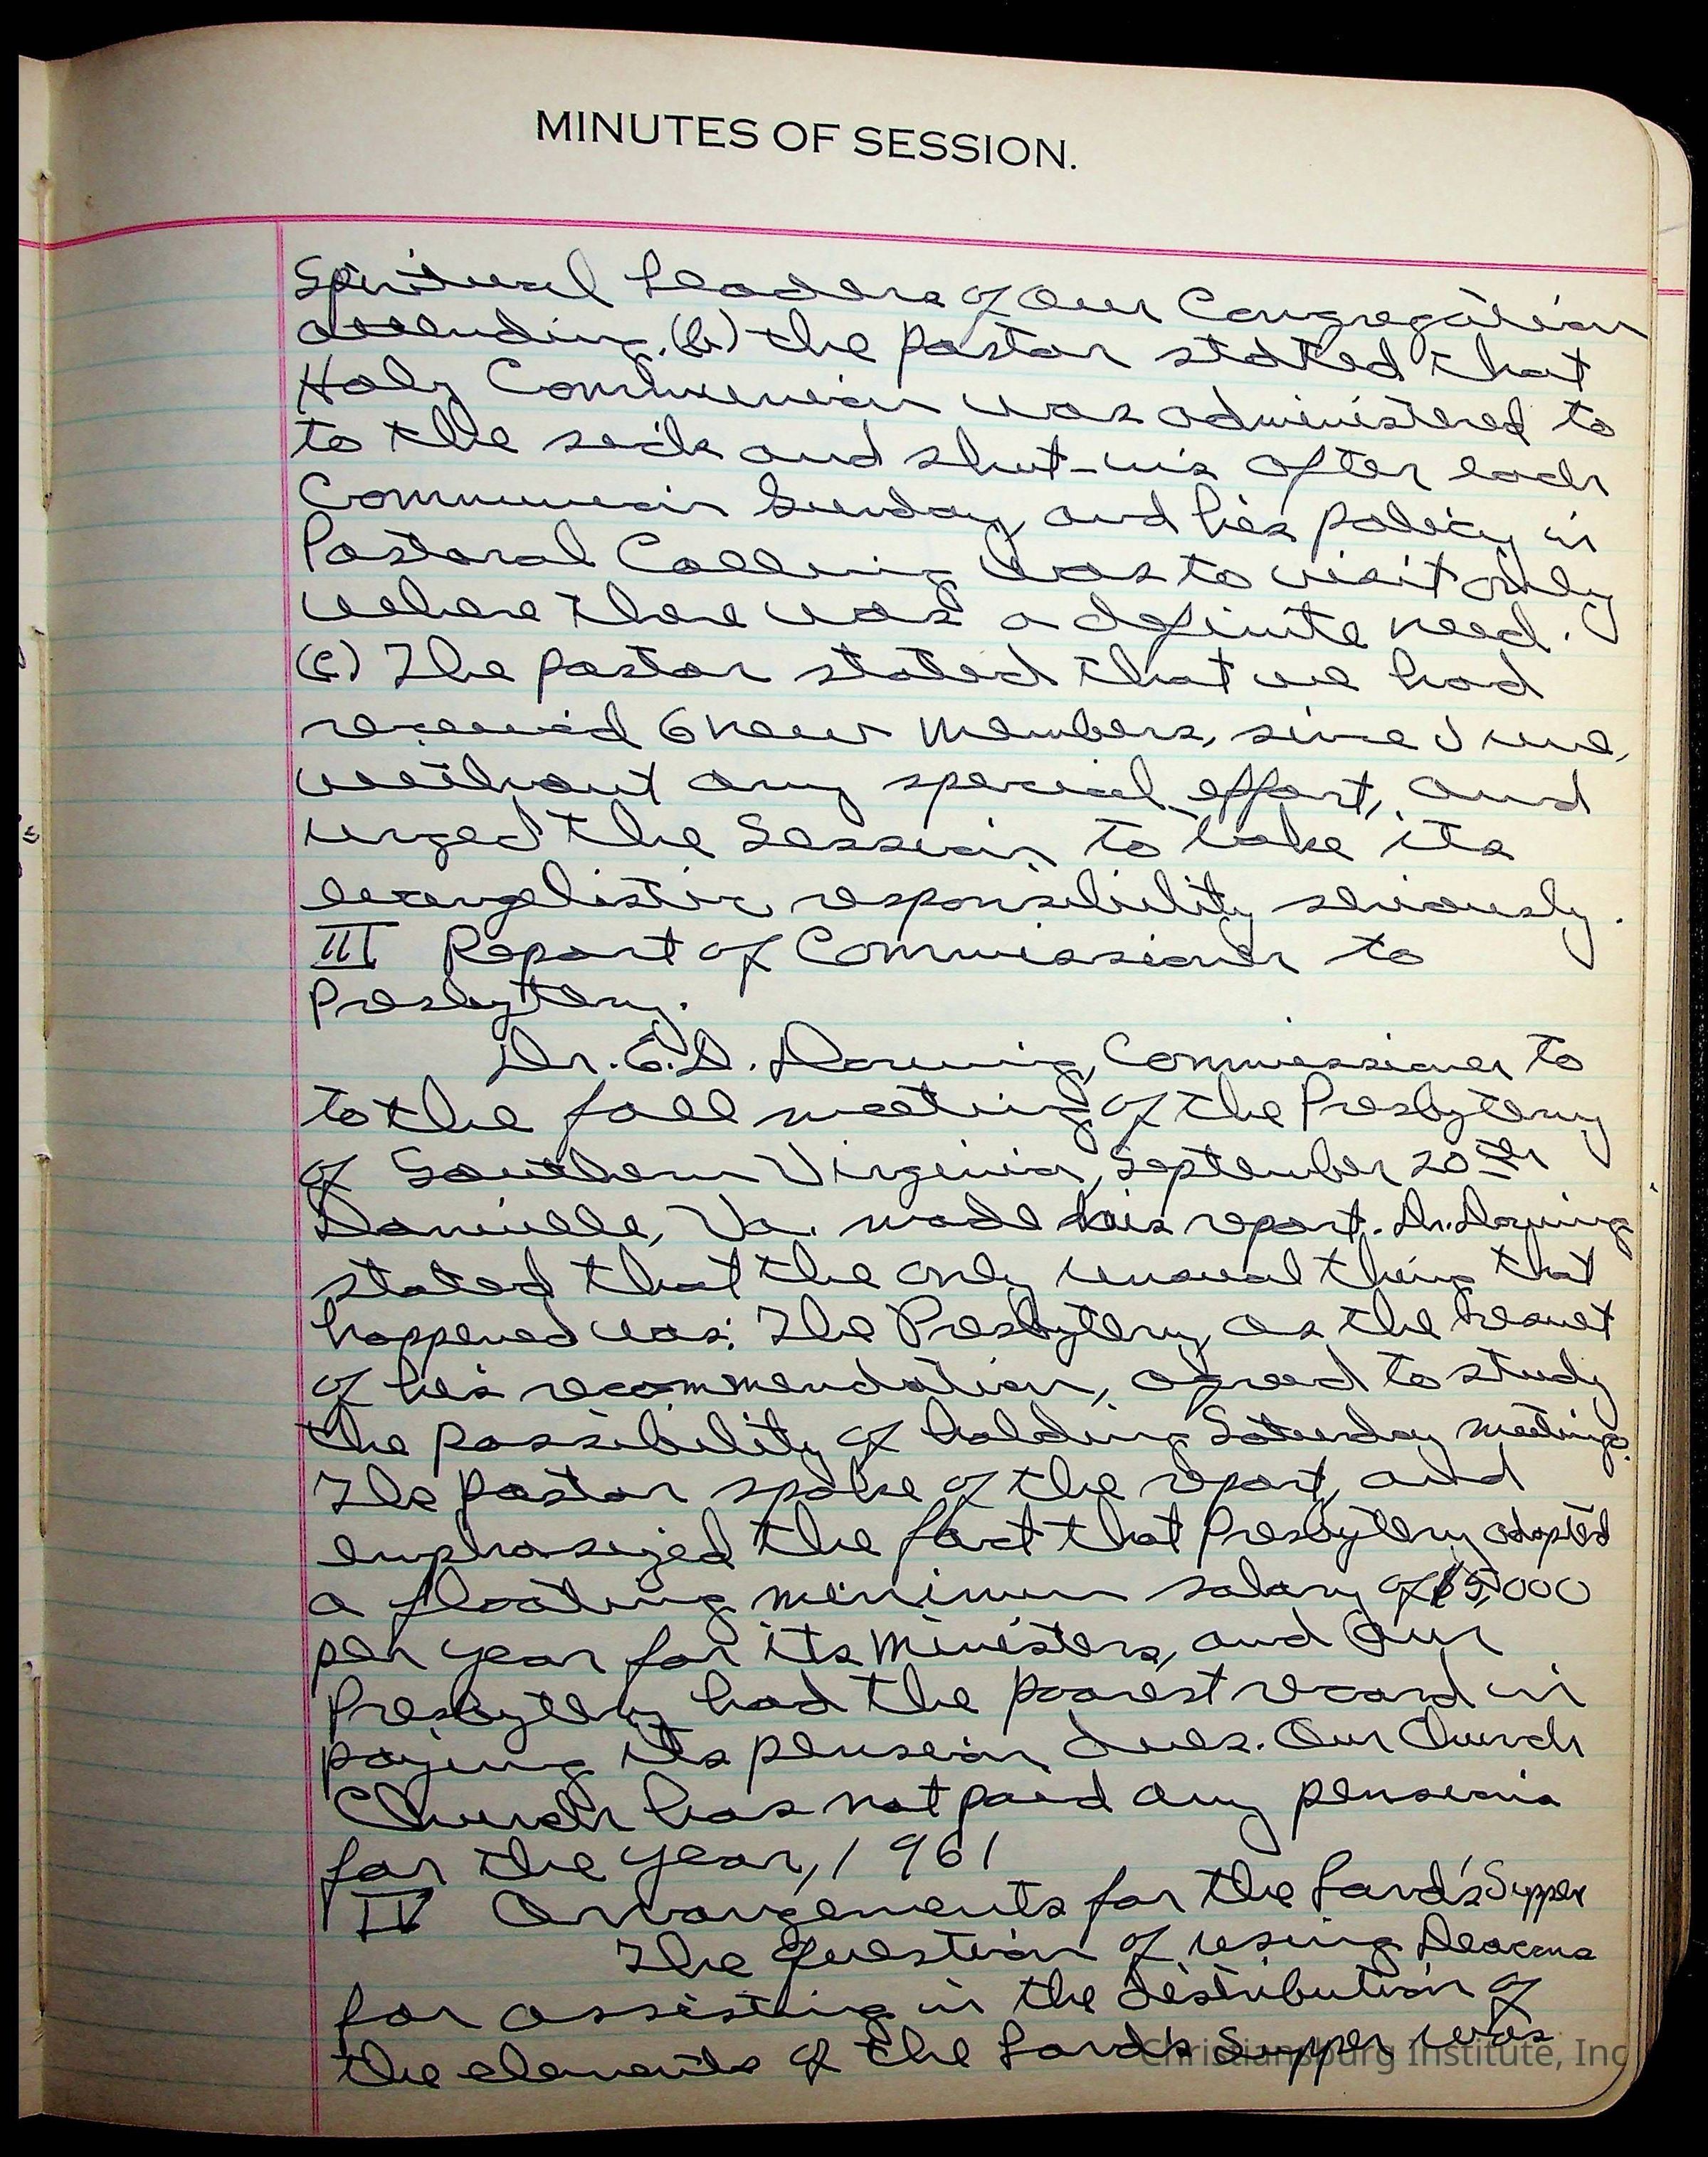 MINUTES OF SESSION.
Spiritual Leaders of our Congregation
attending. (b) the pastor stated that
Holy Communion was administered to
to the sick and shut-ins after each
Communion Sunday, and his policy in
Pastoral Calling was to visit only
where there was a definite need.
(c) The pastor stated that we had
received 6 new members, since June,
without any special effort, and
urged the Session to take its
evangelistic responsibility seriously.
III Report of Commissioner to
Presbytery.
Dr. E.D. Downing, Commissioner to
to the fall meeting of the Presbytery
of Southern Virginia, September 20th
Danville, Va. made his report. Dr. Downing
stated that the only unusual thing that
happened was: The Presbytery, as the result
of his recommendation, agreed to study
the possibility of holding Saturday meetings.
The pastor spoke of the report, and
emphasized the fact that Presbytery adopted
a floating minimum salary of $5,000
per year for its Ministers, and Our
Presbytery had the poorest record in
paying its pension dues. Our Church
Church has not paid any pensions
for the year, 1961
IV Arrangements for the Lord's Supper
The Question of using Deacons
for assisting in the distribution of
the elements of the Lord's Supper was
Christiansburg Institute, Inc